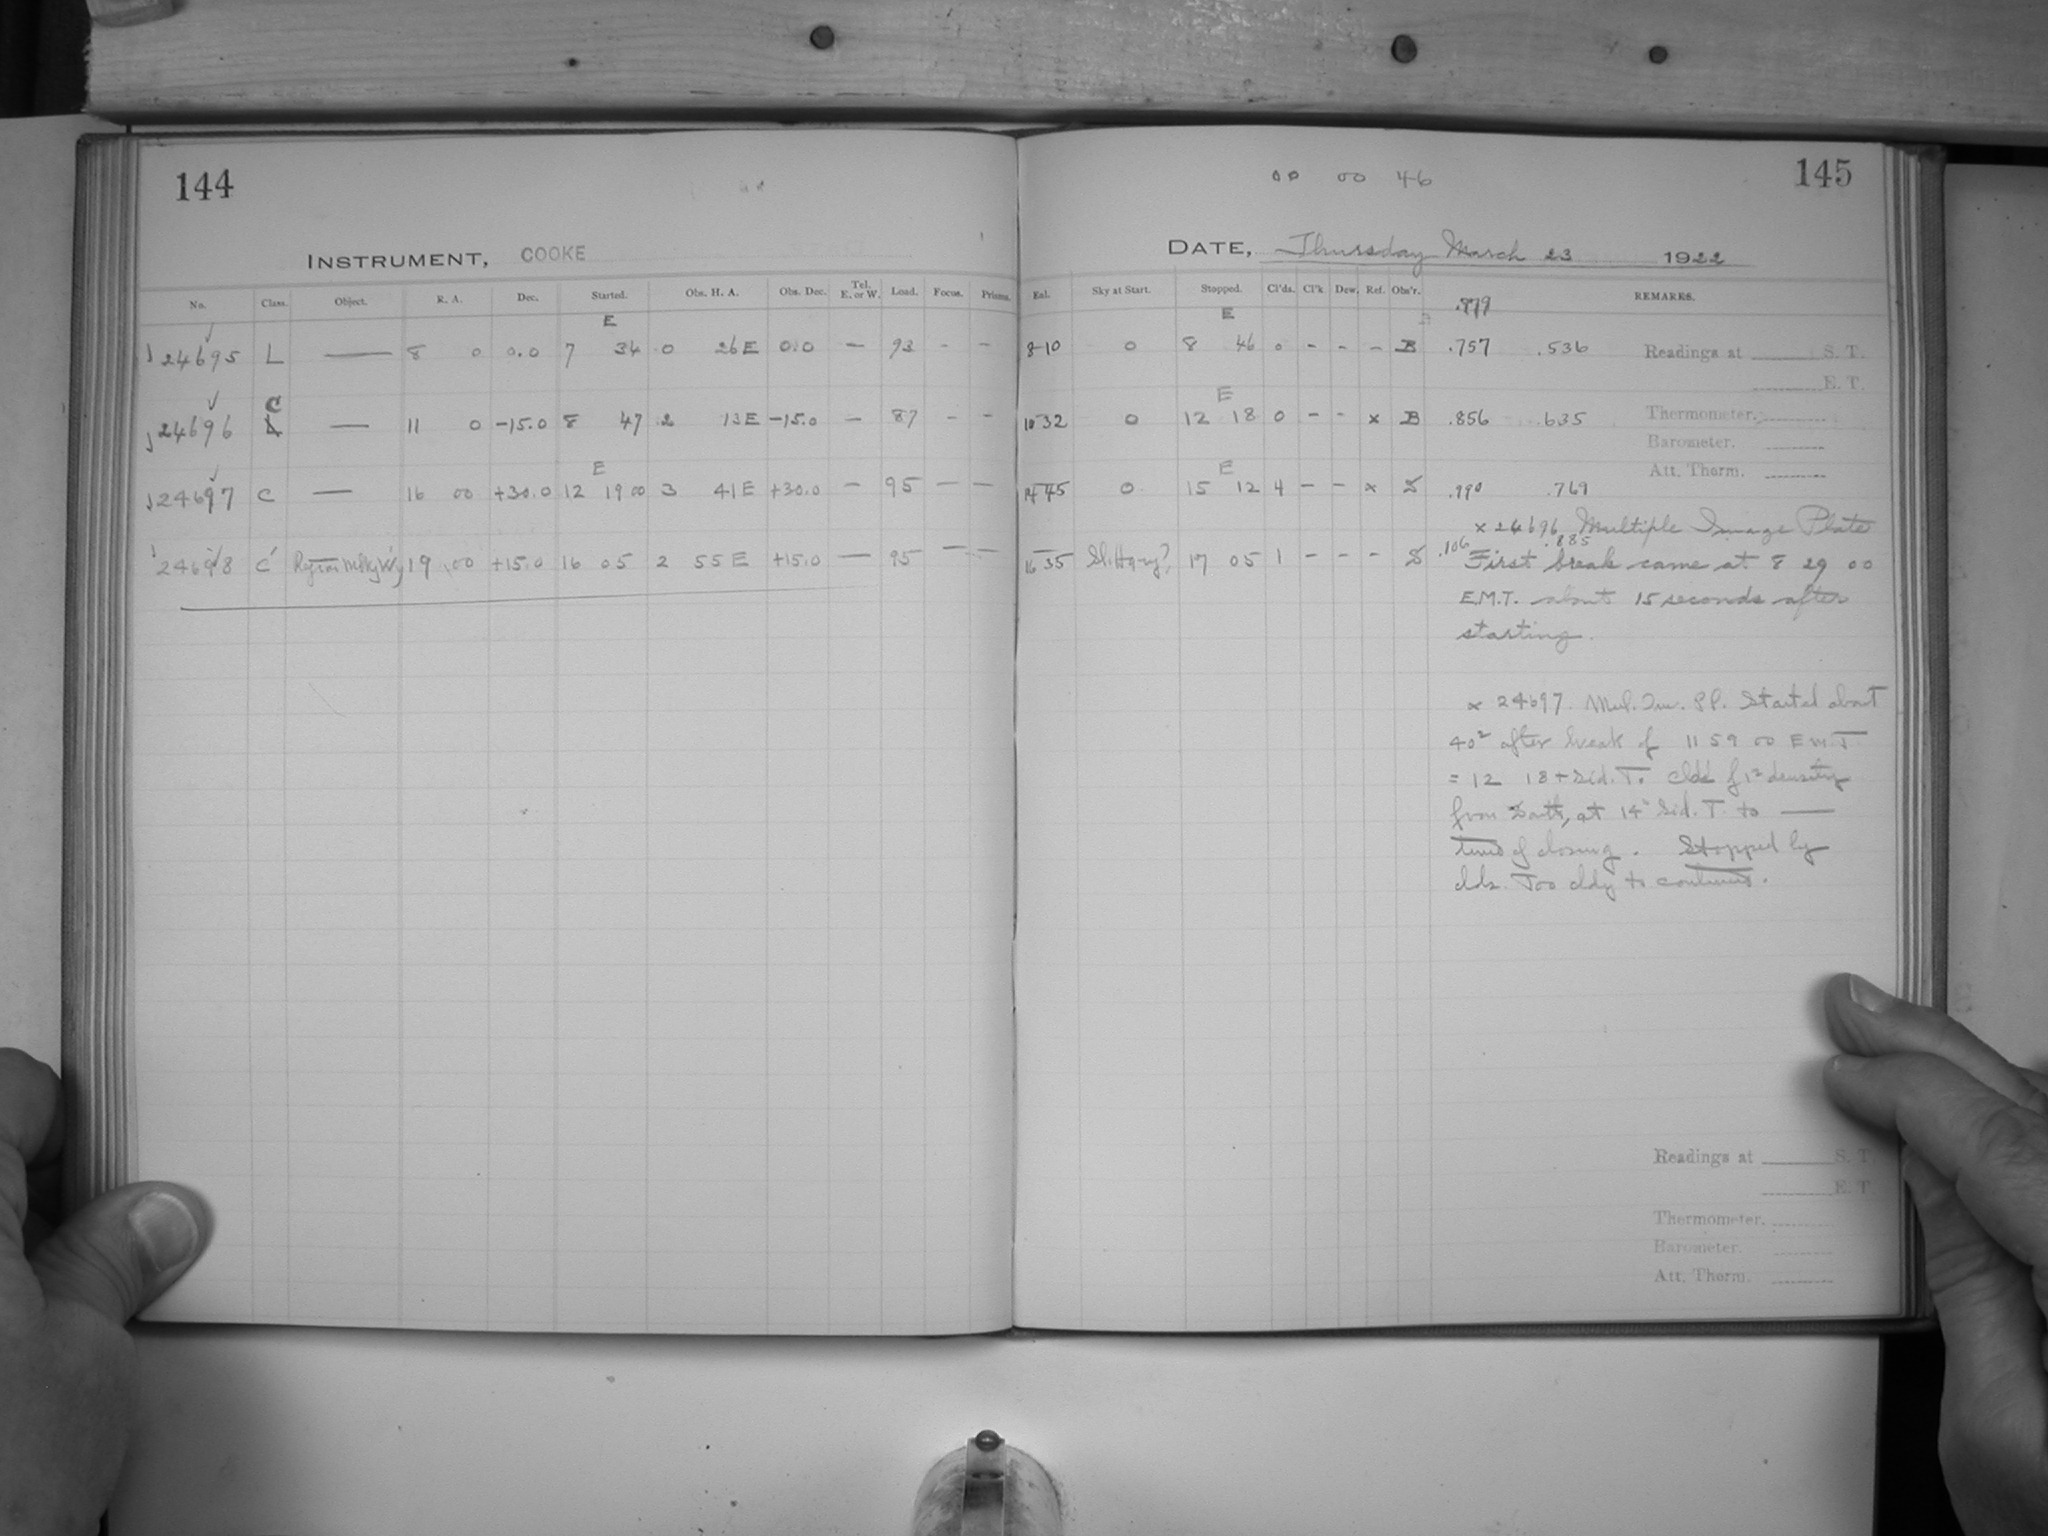 144
INSTRUMENT, COOKE
No. Class. Object. R. A. Dec. Started. Obs. H. A. Obs. Dec. Tel. E. or W. Load. Focus. Prisms.
E
24695 L — 8 0 0.0 7 34 0 26 E 0.0 — 93 - -
C
24696 L — 11 0 -15.0 8 47 2 13 E -15.0 — 87 - -
E
24697 C — 16 00 +30.0 12 19 00 3 41 E +30.0 — 95 — —
24698 C' Region Milky Way 19 00 +15.0 16 05 2 55 E +15.0 — 95 — —
00 00 46
145
DATE, Thursday March 23 1922
Eal. Sky at Start. Stopped. Cl'ds. Cl'k Dew. Ref. Obs'r. REMARKS.
.879
E
8 10 0 8 46 0 - - - B .757 .536
Readings at S. T.
E. T.
E
10 32 0 12 18 0 - - x B .856 .635
Thermometer.
Barometer.
Att. Therm.
E
14 45 0 15 12 4 - - x S .990 .769
x 24696 Multiple Image Plate
16 35 Sl. Hazy? 17 05 1 - - - S .106 .885
First break came at 8 29 00
E.M.T. about 15 seconds after
starting.
x 24697. Mul. Im. Pl. Started about
40s after break of 11 59 00 E M T
= 12 18 + Sid. T. Clds of 1s density
from South, at 14h Sid. T. to —
time of closing. Stopped by
clds. Too cldy to continue.
Readings at S. T.
E. T.
Thermometer.
Barometer.
Att. Therm.